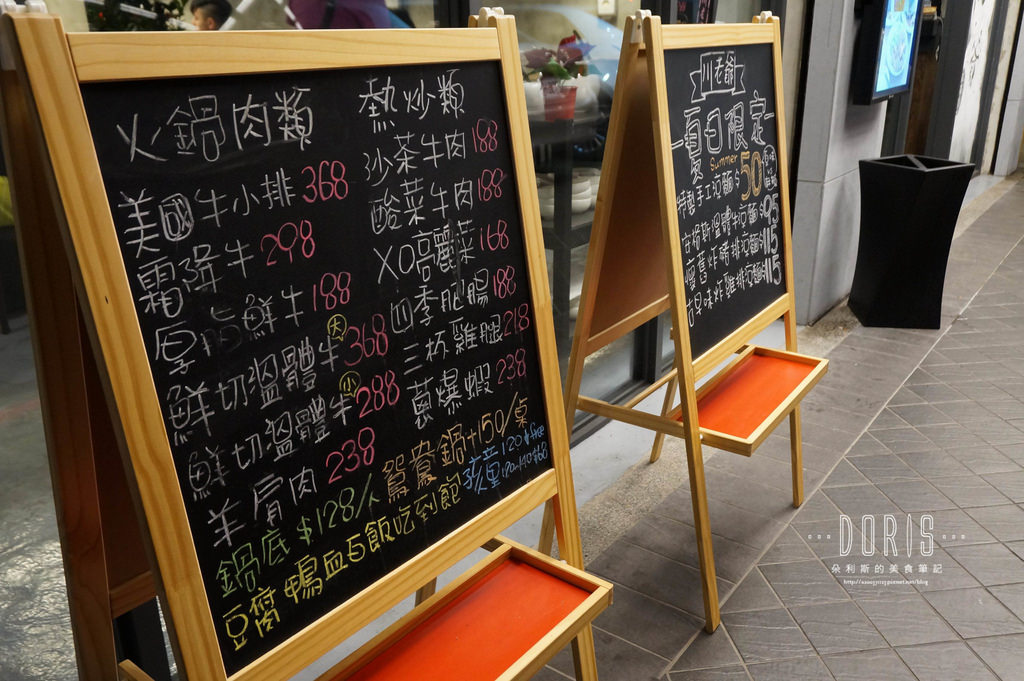 火鍋肉類
美國牛小排 368
霜降牛 298
厚 鮮牛 188
鮮切溫體牛 大 368
鮮切溫體牛 小 288
羊肩肉 238
鍋底 $128/人
鴛鴦鍋+150/桌
豆腐鴨血白飯吃到飽
孩童 120↓free
120~140 $68
熱炒類
沙茶牛肉 188
酸菜牛肉 188
XO高麗菜 168
四季肥腸 188
三杯雞腿 218
蔥爆蝦 238
川老爺
夏日限定
Summer
特製手工涼麵 $50
溫體牛涼麵 $95
炸豬排涼麵 $115
古早味炸雞排涼麵 $115
DORIS
朵利斯的美食筆記